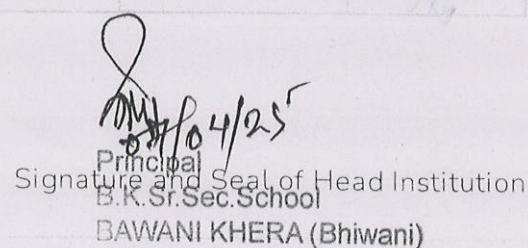 04/25
Principal
Signature and Seal of Head Institution
B.K.Sr.Sec.School
BAWANI KHERA (Bhiwani)